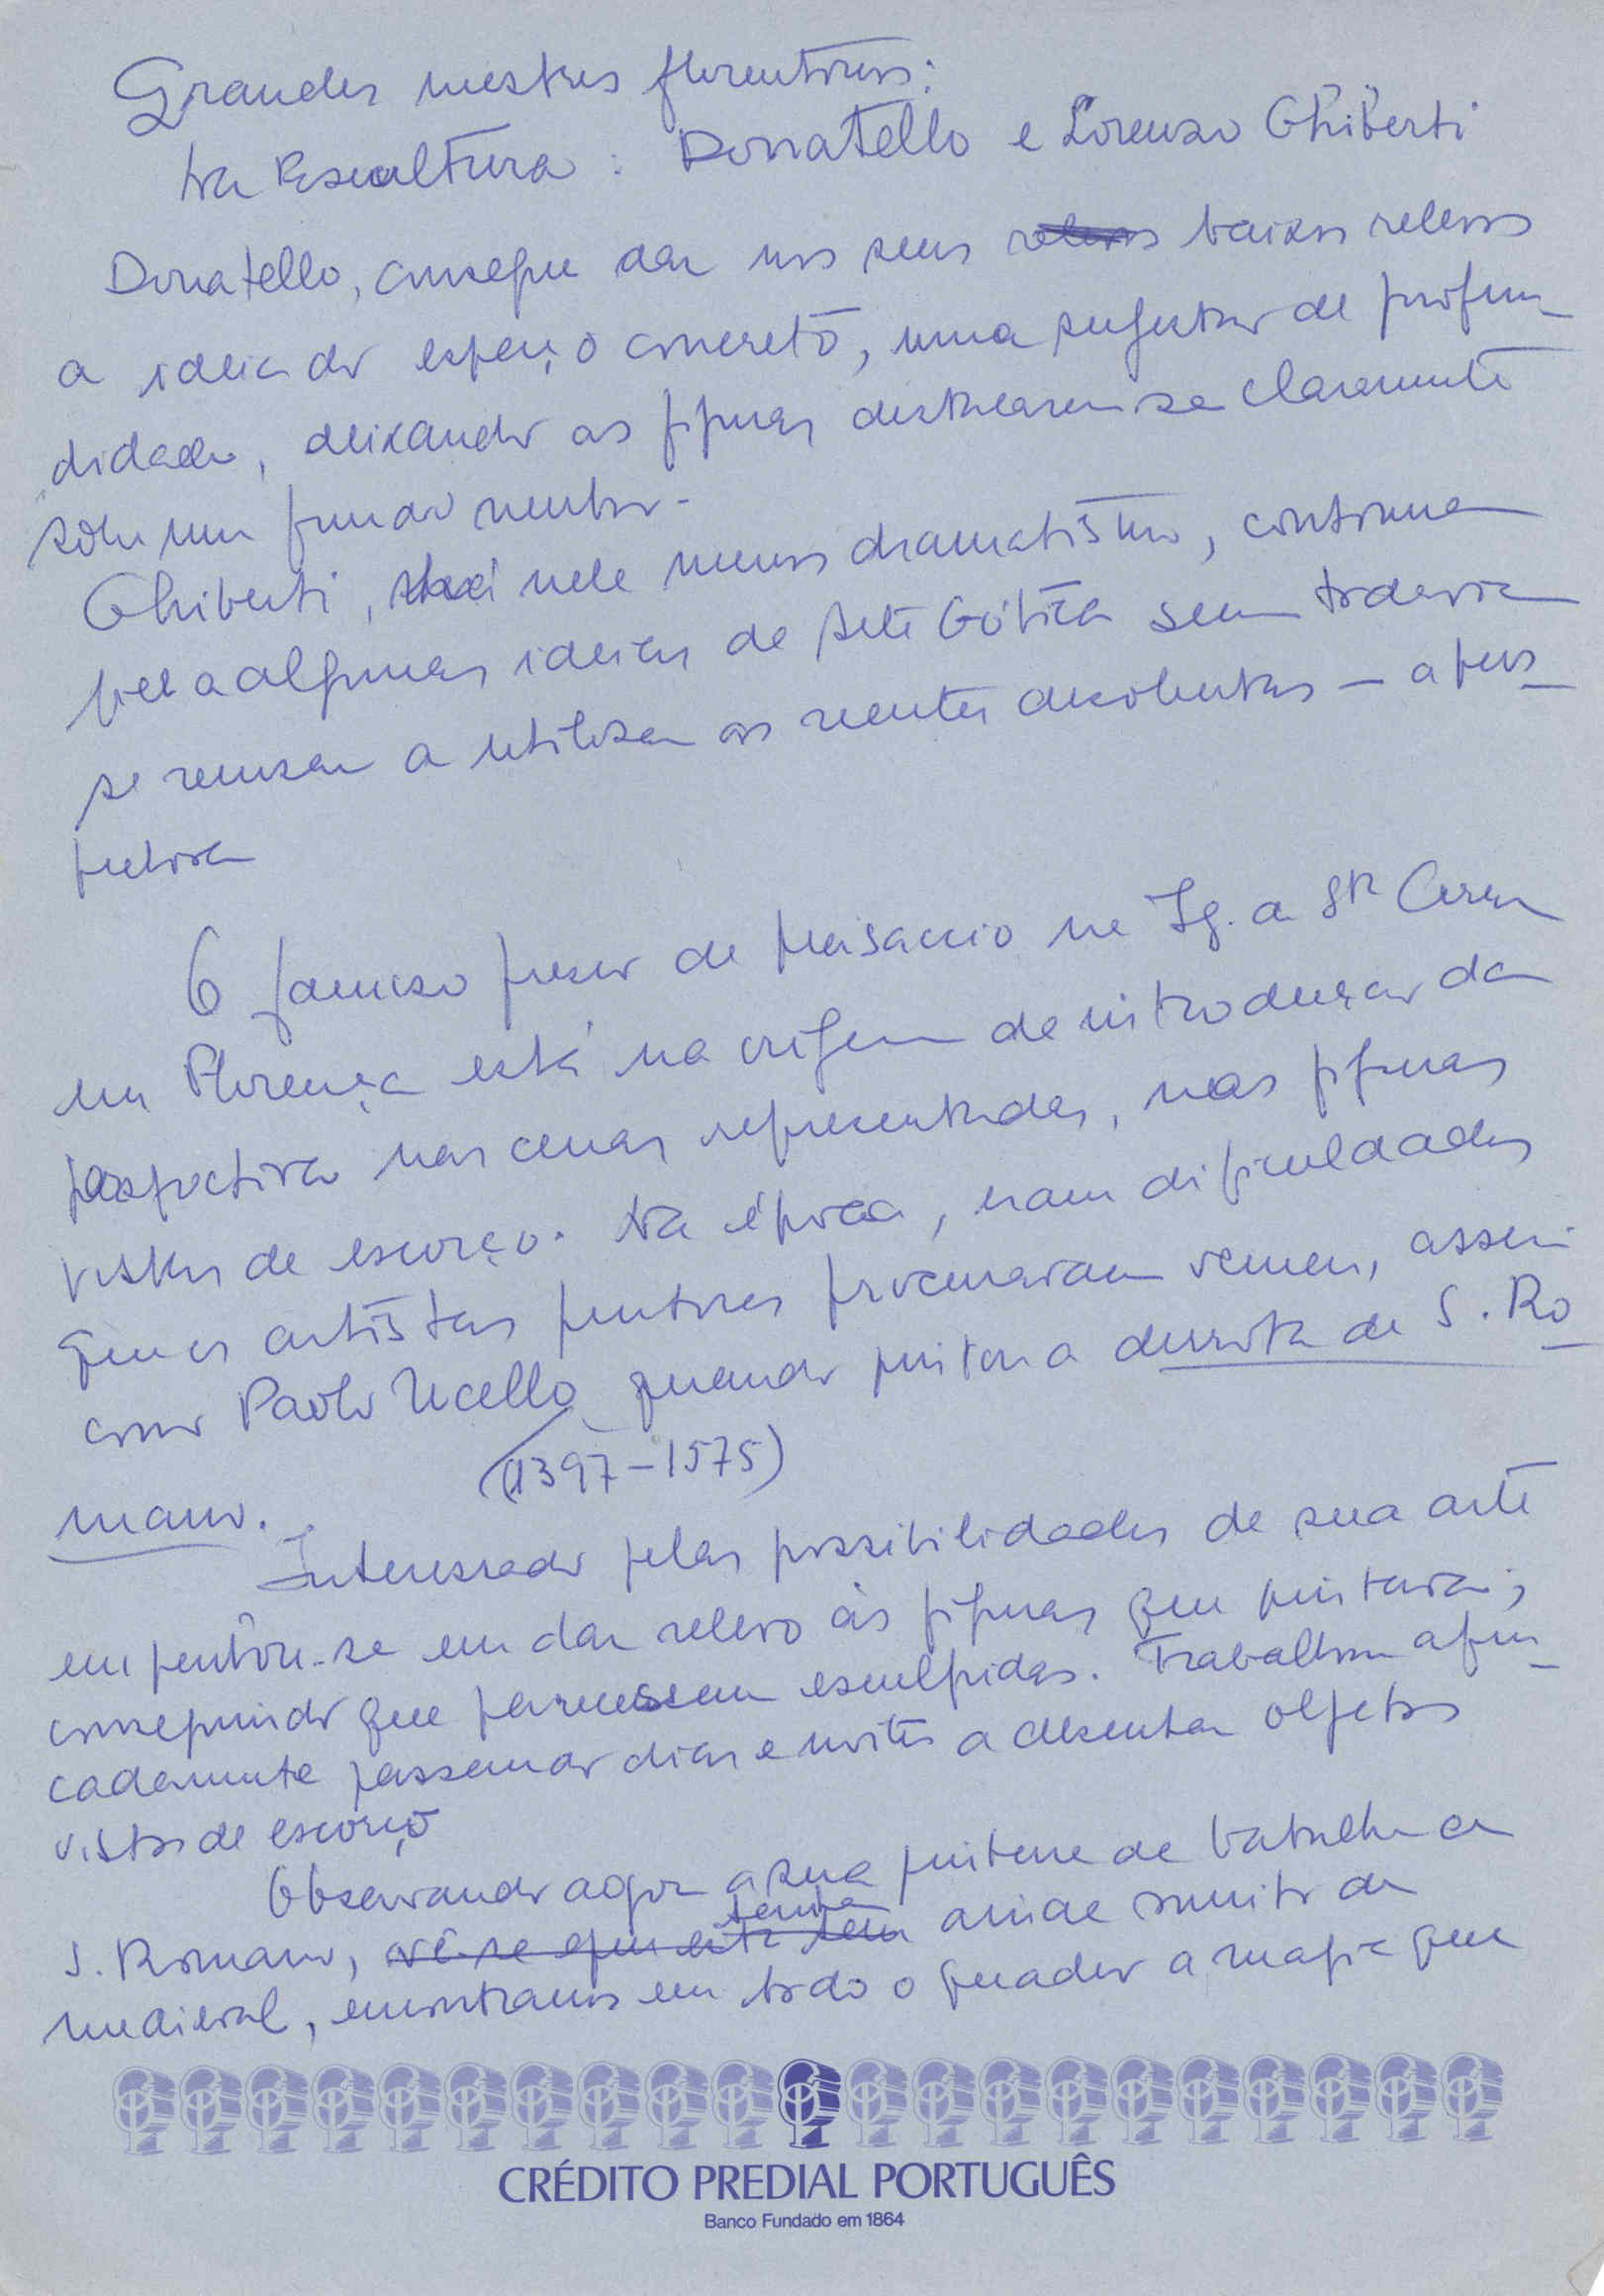 Grandes mestres florentinos:
Na Escultura: Donatello e Lorenzo Ghiberti
Donatello, consegue dar nos seus relevos baixos relevos
a ideia do espaço concreto, uma sugestão de profun
didade, deixando as figuras destacarem-se claramente
sobre um fundo neutro.
Ghiberti, há nele menos dramatismo, continua
fiel a algumas ideias de Arte Gótica sem todavia
se recusar a utilizar as recentes descobertas – a pers
pectiva
O famoso fresco de Masaccio na Ig. a St Croce
em Florença está na origem de introdução da
perspectiva nas cenas representadas, nas figuras
vistas de escorço. Na época, eram dificuldades
que os artistas pintores procuravam vencer, assim
como Paolo Ucello quando pintou a derrota de S. Ro
(1397–1575)
mano.
Interessado pelas possibilidades de sua arte
empenhou-se em dar relevo às figuras que pintava;
conseguindo que parecessem esculpidas. Trabalhou afin
cadamente passando dias e noites a desenhar objetos
vistos de escorço
Observando agora a sua pintura de batalha de
tenha
S. Romano, vê-se que esta tem ainda muito de
medieval, encontramos em todo o quadro a magia que
CRÉDITO PREDIAL PORTUGUÊS
Banco Fundado em 1864